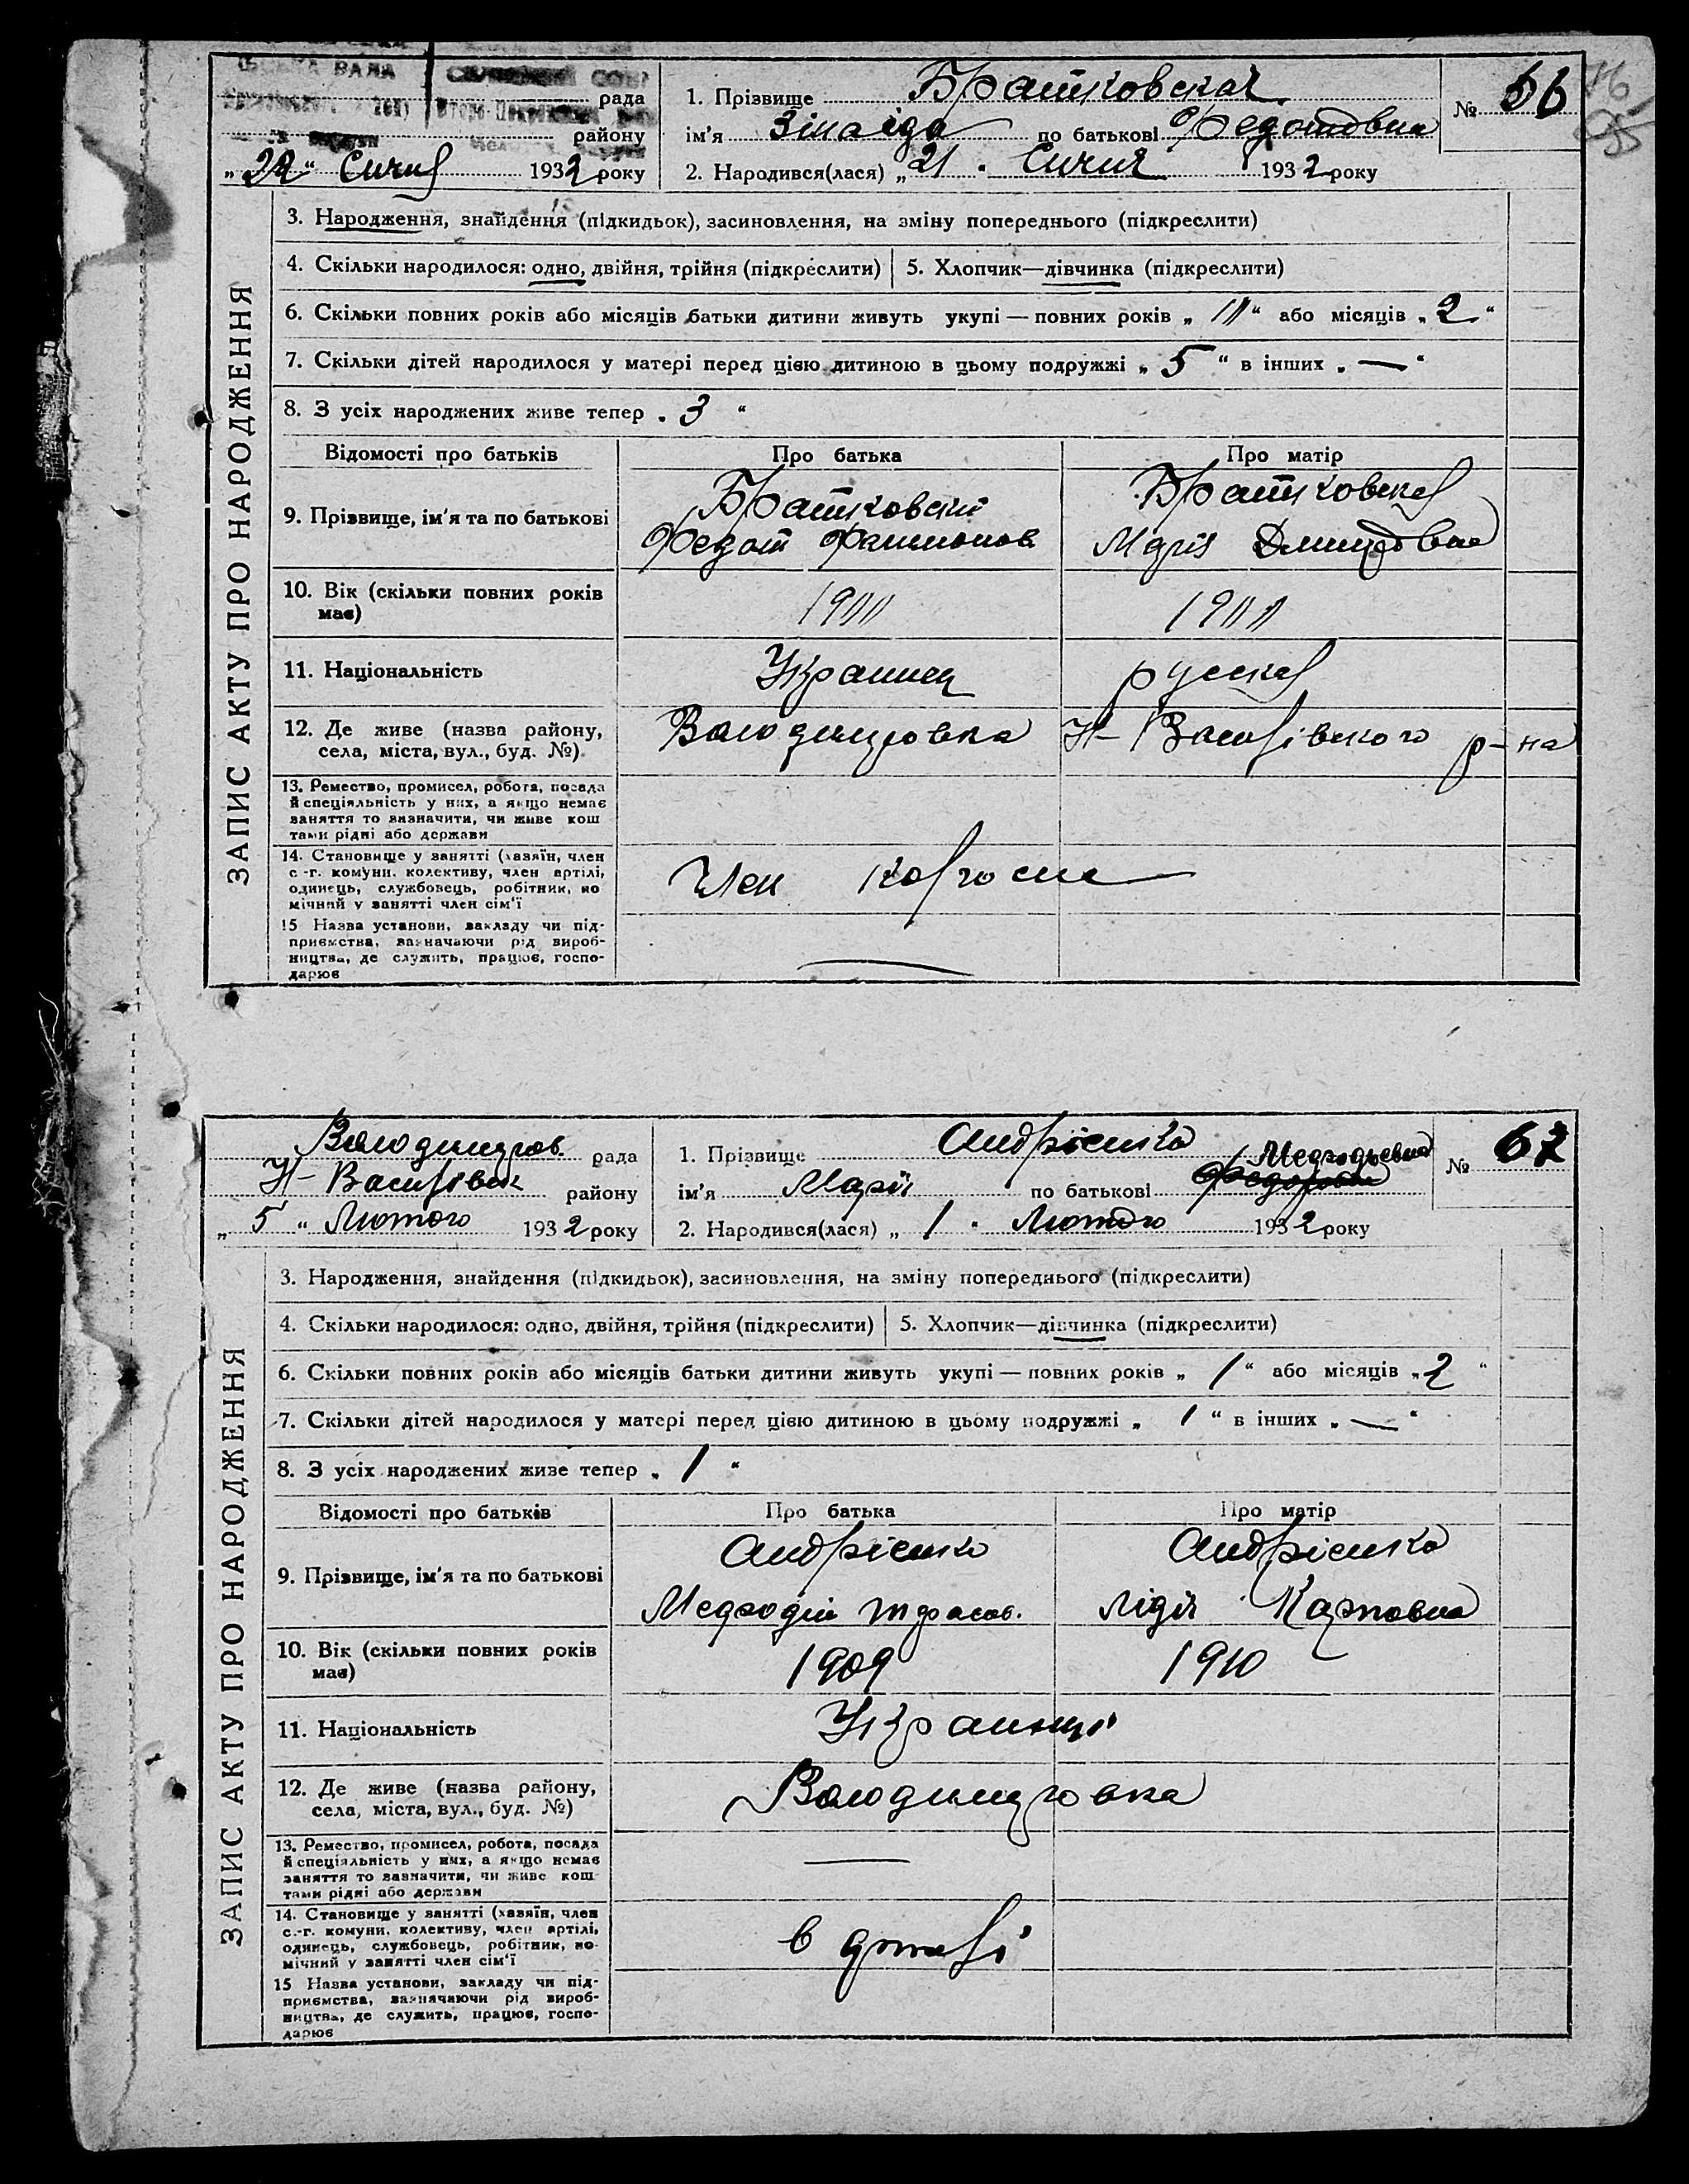 СЬКА РАДА
рада
району
„22“ Січня 1932 року
1. Прізвище Братковская
ім'я Зінаіда по батькові Федотовна
2. Народився(лася) „21“ Січня 1932 року
№ 66
ЗАПИС АКТУ ПРО НАРОДЖЕННЯ
3. Народження, знайдення (підкидьок), засиновлення, на зміну попереднього (підкреслити)
4. Скільки народилося: одно, двійня, трійня (підкреслити) 5. Хлопчик—дівчинка (підкреслити)
6. Скільки повних років або місяців батьки дитини живуть укупі — повних років „11“ або місяців „2“
7. Скільки дітей народилося у матері перед цією дитиною в цьому подружжі „5“ в інших „—“
8. З усіх народжених живе тепер „3“
Відомості про батьків Про батька Про матір
9. Прізвище, ім'я та по батькові
Братковскій Братковская
Федот Марія
10. Вік (скільки повних років
має)
1900 1900
11. Національність Украинец руская
12. Де живе (назва району,
села, міста, вул., буд. №).
Володимировка Н-Василівського р-на
13. Ремество, промисел, робота, посада
й спеціяльність у них, а якщо немає
заняття то зазначити, чи живе кош
тами рідні або держави
14. Становище у занятті (хазяїн, член
с.-г. комуни, колективу, член артілі,
одинець, службовець, робітник, по
мічний у занятті член сім'ї
Член
15 Назва установи, закладу чи під-
приємства, зазначаючи рід вироб-
ництва, де служить, працює, госпо-
дарює
Володимиров. рада
Н-Василівск району
„5“ Лютого 1932 року
1. Прізвище Андрієнко
Мефодьевна
ім'я Марія по батькові Федоровна
2. Народився(лася) „1“ Лютого 1932 року
№ 67
ЗАПИС АКТУ ПРО НАРОДЖЕННЯ
3. Народження, знайдення (підкидьок), засиновлення, на зміну попереднього (підкреслити)
4. Скільки народилося: одно, двійня, трійня (підкреслити) 5. Хлопчик—дівчинка (підкреслити)
6. Скільки повних років або місяців батьки дитини живуть укупі — повних років „1“ або місяців „2“
7. Скільки дітей народилося у матері перед цією дитиною в цьому подружжі „1“ в інших „—“
8. З усіх народжених живе тепер „1“
Відомості про батьків Про батька Про матір
9. Прізвище, ім'я та по батькові
Андрієнко Андрієнко
Мефодій Тарасов. Лідія Карповна
10. Вік (скільки повних років
має)
1909 1910
11. Національність Украинці
12. Де живе (назва району,
села, міста, вул., буд. №)
Володимировка
13. Ремество, промисел, робота, посада
й спеціяльність у них, а якщо немає
заняття то зазначити, чи живе кош
тами рідні або держави
14. Становище у занятті (хазяїн, член
с.-г. комуни, колективу, член артілі,
одинець, службовець, робітник, по-
мічний у занятті член сім'ї
в артелі
15 Назва установи, закладу чи під-
приємства, зазначаючи рід вироб-
ництва, де служить, працює, госпо-
дарює